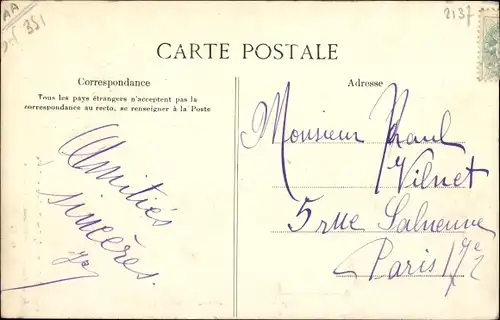 AA
351
2137
CARTE POSTALE
Correspondance
Tous les pays étrangers n'acceptent pas la
correspondance au recto, se renseigner à la Poste
Amitiés
sincères.
Adresse
Monsieur Raoul
Vilnet
5 rue Salneuve
Paris 17e